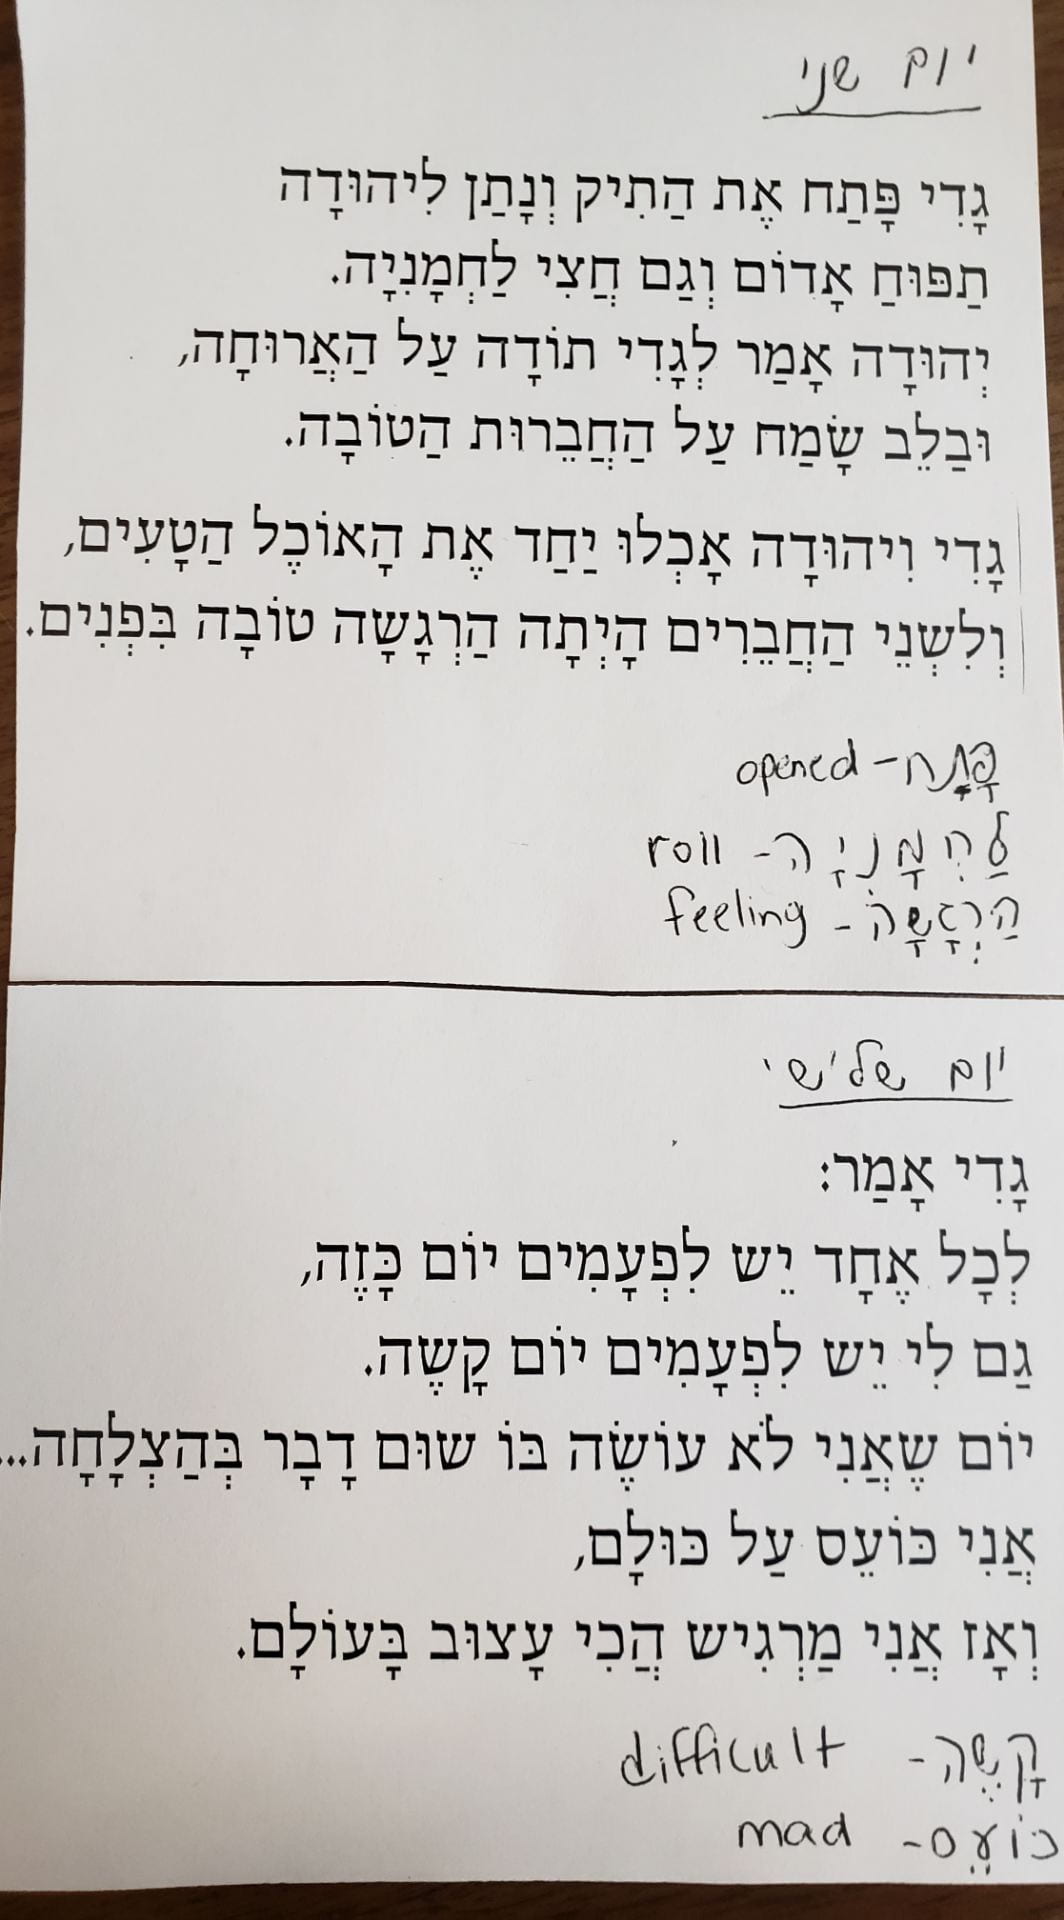 יום שני
גָדִי פָּתַח אֶת הַתִיק וְנָתַן לִיהוּדָה
תַפּוּחַ אָדוֹם וְגַם חֲצִי לַחְמָנִיָה.
יְהוּדָה אָמַר לְגָדִי תוֹדָה עַל הַאֲרוּחָה,
וּבַלֵב שָׂמַח עַל הַחֲבֵרוּת הַטוֹבָה.
גָדִי וִיהוּדָה אָכְלוּ יַחַד אֶת הָאוֹכֶל הַטָעִים,
וְלִשְנֵי הַחֲבֵרִים הָיְתָה הַרְגָשָה טוֹבָה בִּפְנִים.
פָּתַח - opened
לַחְמָנִיָה - roll
הַרְגָשָה - feeling
יום שלישי
גָדִי אָמַר:
לְכָל אֶחָד יֵש לִפְעָמִים יוֹם כָּזֶה,
גַם לִי יֵש לִפְעָמִים יוֹם קָשֶה.
יוֹם שֶאֲנִי לֹא עוֹשֶׂה בּוֹ שוּם דָבָר בְּהַצְלָחָה...
אֲנִי כּוֹעֵס עַל כּוּלָם,
וְאָז אֲנִי מַרְגִיש הֲכִי עָצוּב בָּעוֹלָם.
קָשֶה - difficult
כּוֹעֵס - mad